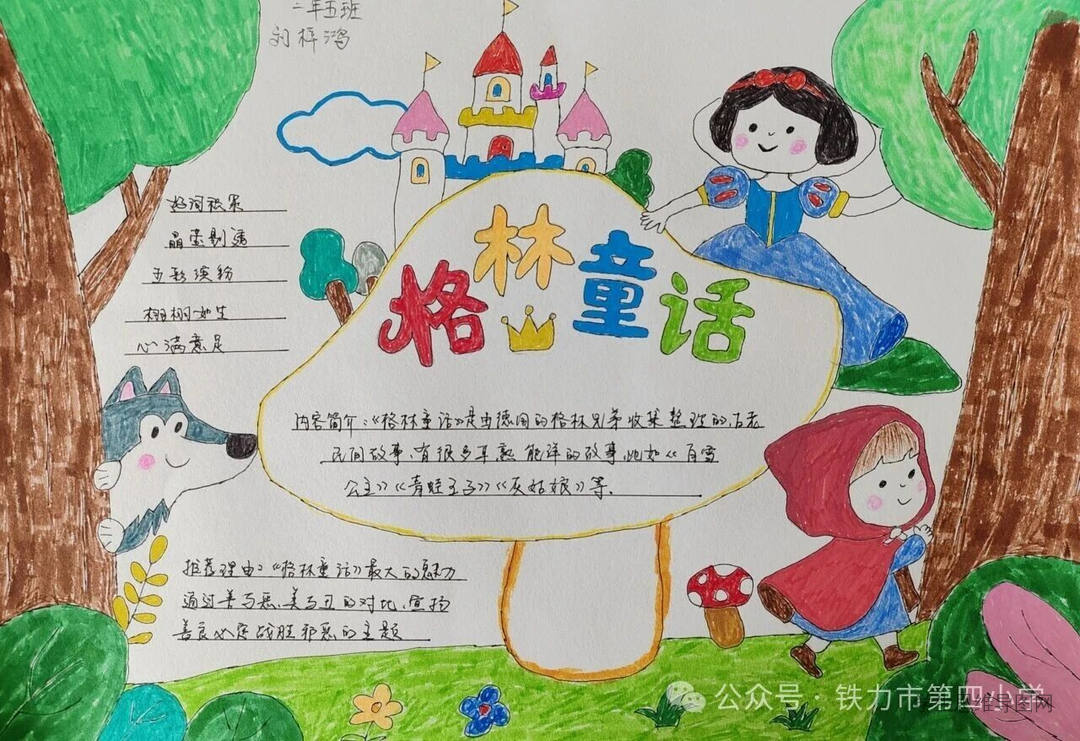 二年五班
刘梓鸿
格林童话
好词积累
晶莹剔透
五彩缤纷
栩栩如生
心满意足
内容简介:《格林童话》是由德国的格林兄弟收集整理的古老
民间故事,有很多耳熟能详的故事,比如《白雪
公主》《青蛙王子》《灰姑娘》等.
推荐理由:《格林童话》最大的魅力
通过善与恶、美与丑的对比,宣扬
善良必定战胜邪恶的主题
公众号·铁力市第四小学
思维导图网